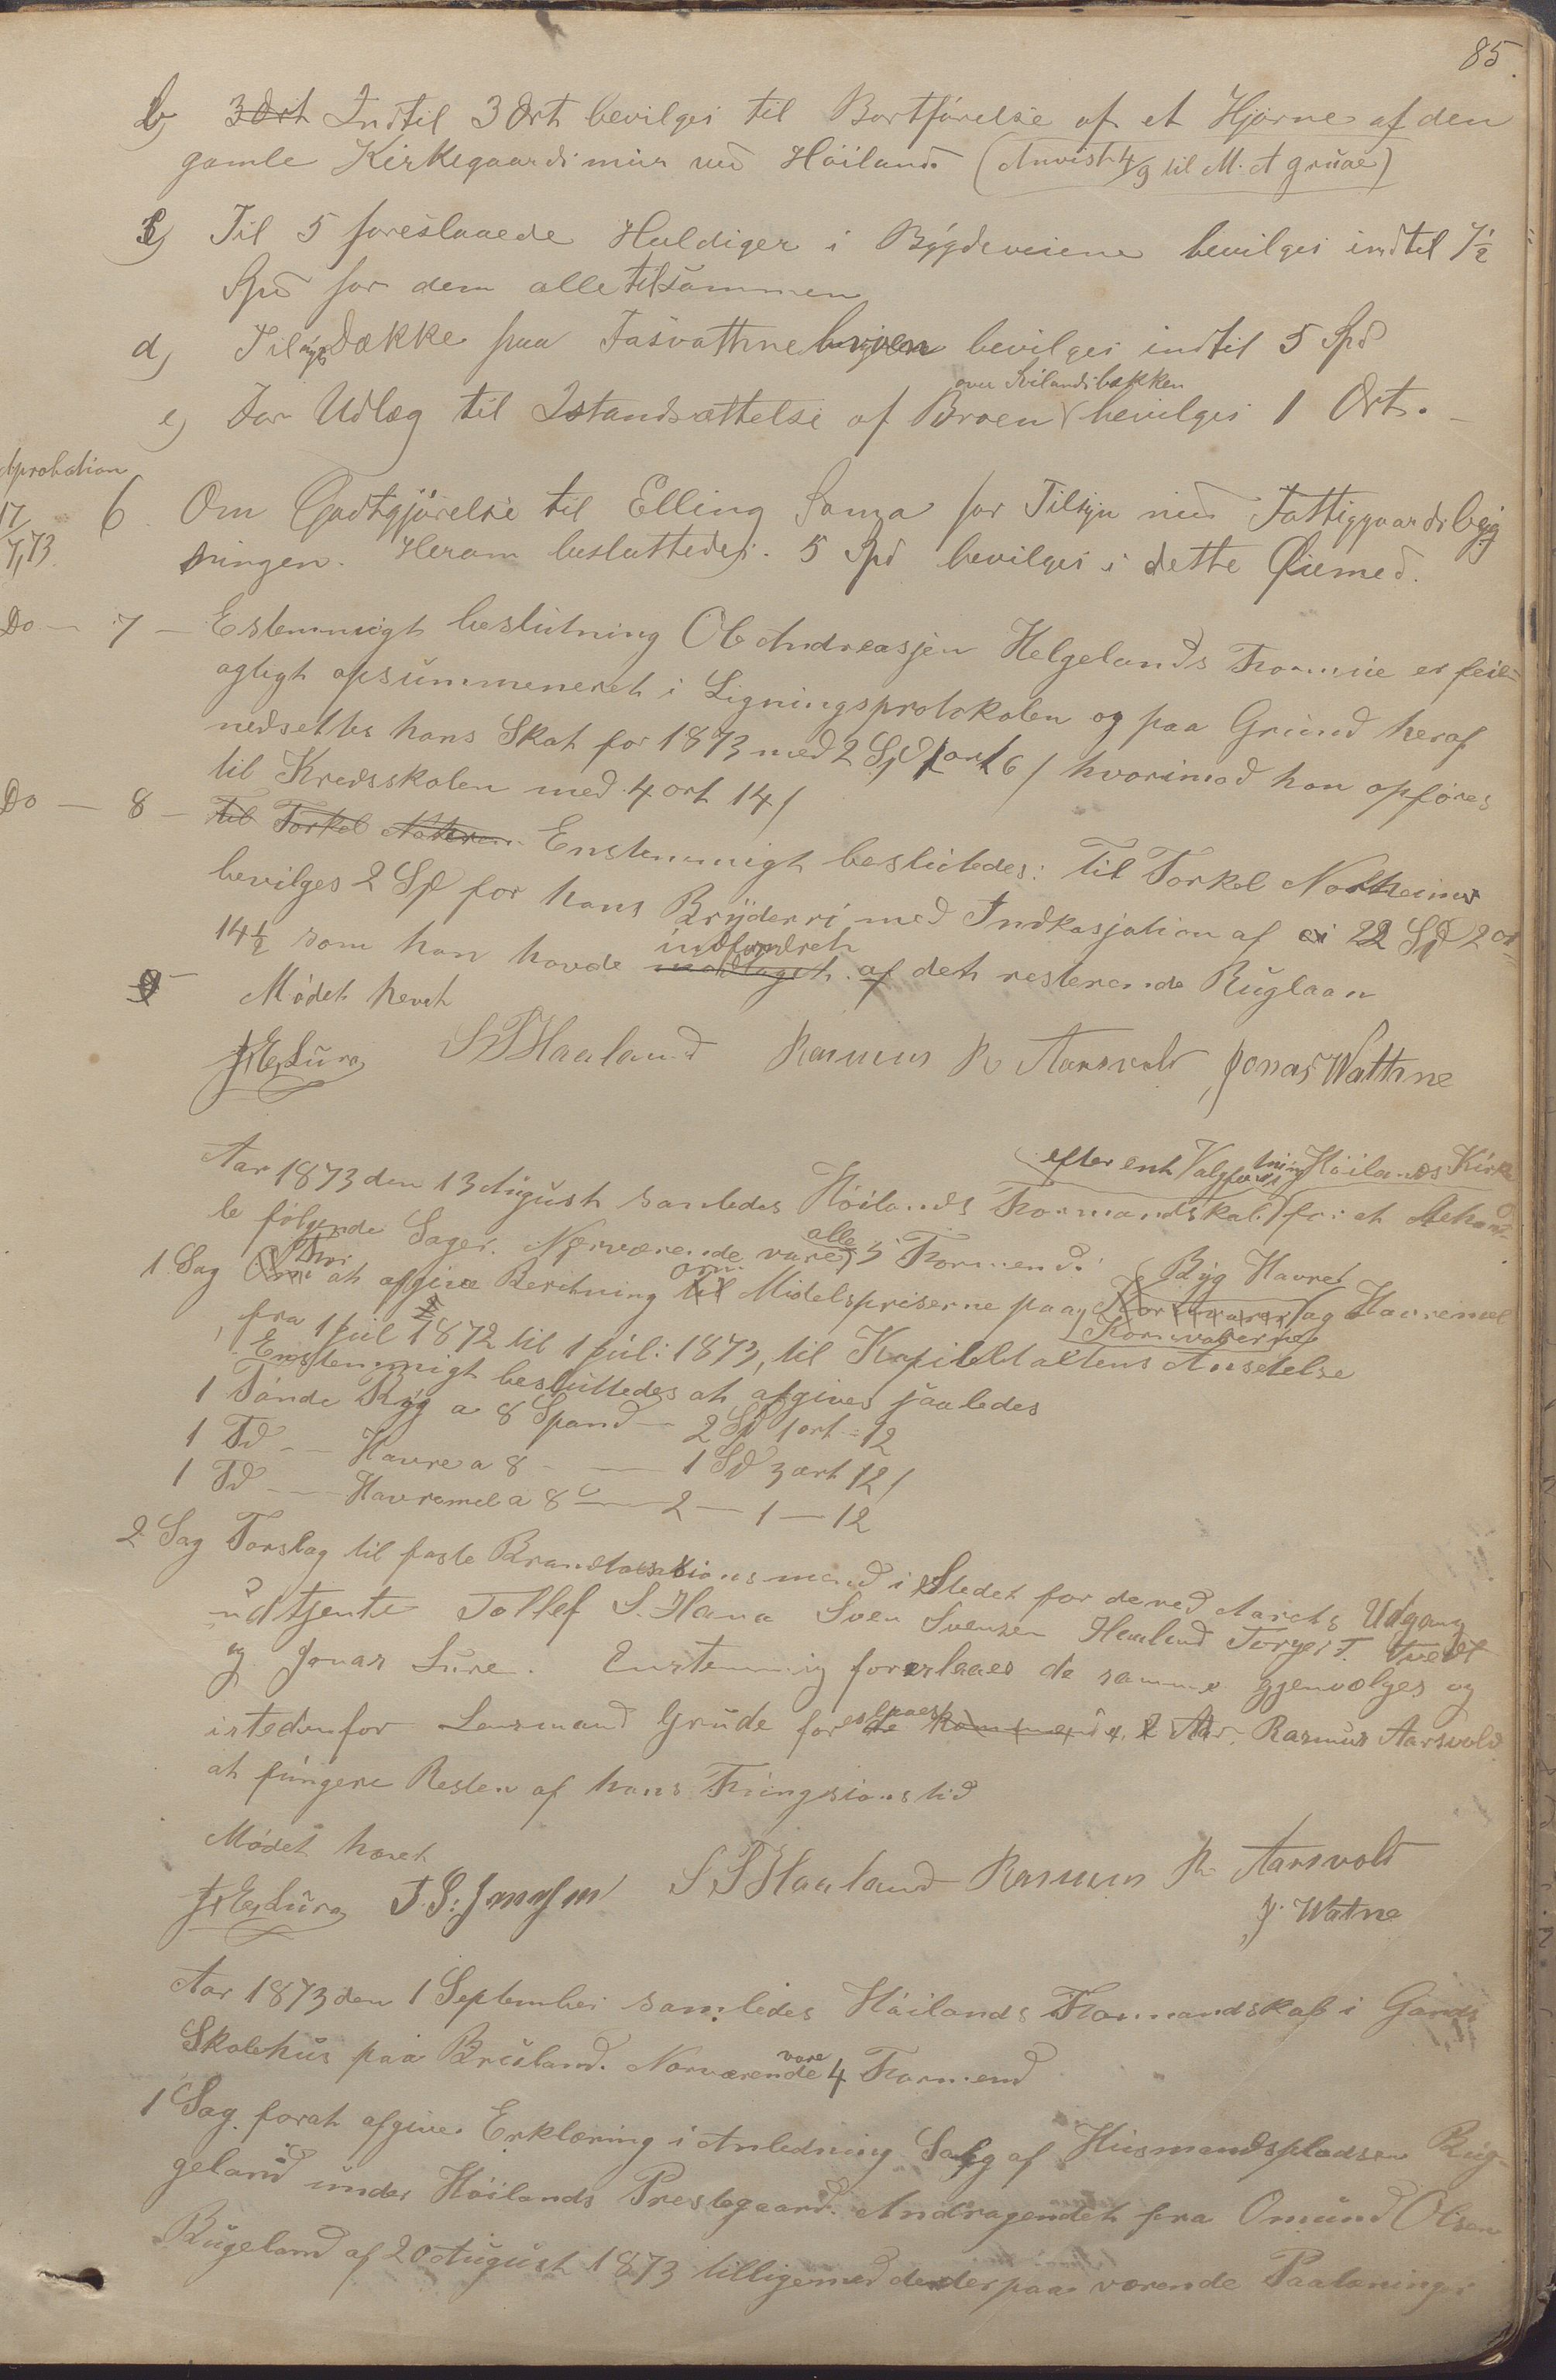 85.
b) 3 Ort Indtil 3 Ort bevilges til Bortförelse af et Hjörne af den
gamle Kirkegaardsmur ved Höiland (Anvist 4/9 til M. A gruae)
c) Til 5 foreslaaede Huldiger i Bygdeveiene bevilges indtil 7½
Spd for dem alle tilsammen
d) Til nyt Dække paa Fasvathnebroen bevilges indtil 5 Spd
over Svilandsbækken
e) For Udlæg til Istandsættelse af Broen bevilges 1 Ort. —
Aprobation
17/7,73.
6. Om Godtgjörelse til Elling Soma for Tilsyn med Fattiggaardsbyg
ningen. Herom besluttedes: 5 Spd bevilges i dette Øiemed.
Do — 7 — Estemmigt beslutning Ole Andreasjen Helgelands Formue er feil=
agtigt opsummeneret i Ligningsprotokolen og paa Grund heraf
nedsettes hans Skat for 1873 med 2 Spd 1 ort 6 / hvorimod han opföres
til Kredsskolen med 4 ort 14 /
Do — 8 — Til Torkel Enstemmigt besluttedes: Til Torkel Northeim
bevilges 2 Spd for hans Bryderri med Indkasjation af 22 Spd 2 ort
indfordreth
14½ som han havde modtaget af deth resterende Ruglaan
9 — Mödet hevet
S T Haaland Rasmus R Aarsvold Jonas Wathne
efter enk Valgforretning i Höilands Kirke
Aar 1873 den 13 August samledes Höilands Formandskab for at Behand
le fölgende Sager. Nærværende vare alle 5 Formend.
1 Sag For at afgive Beretning om Midelspriserne paa Byg Havre og Havremel
Kornvarerne
fra 1 Juli 1872 til 1 Juli 1873, til Kapiteltaktens Ansetelse
Enstemmigt besluttedes at afgives saaledes
1 Tönde Byg a 8 Spand — 2 Spd 1 ort = 12
1 Td — Havre a 8 — — 1 Spd 3 ort 12 /
1 Td — Havremel a 8 — 2 — 1 — 12
2 Sag Forslag til faste Brandtaxtionsmend i Stedet for de ved Aarets Udgang
udtjente Tollef S. Hana Sven Svensen Haaland Torger T. Tvedt
og Jonas Lure. Enstemmig foreslaaes de samme gjenvælges og
istedenfor Lensmand Grude foreslaaes de kommende 2 Aar. Rasmus Aarsvold
at fungere Resten af hans Fungsionstid
Mödet hævet
S T Haaland Rasmus R Aarsvold
J. Watne
Aar 1873 den 1 September samledes Höilands Formandskab i Gands
Skolehus paa Brusland. Nærværende vare 4 Formend
1 Sag. forat afgive Erklæring i Anledning Salg af Husmandspladsen Rug-
geland under Höilands Prestegaard. Andragendet fra Omund Olsen
Rugeland af 20 August 1873 tilligemed de derpaa værende Paategninger